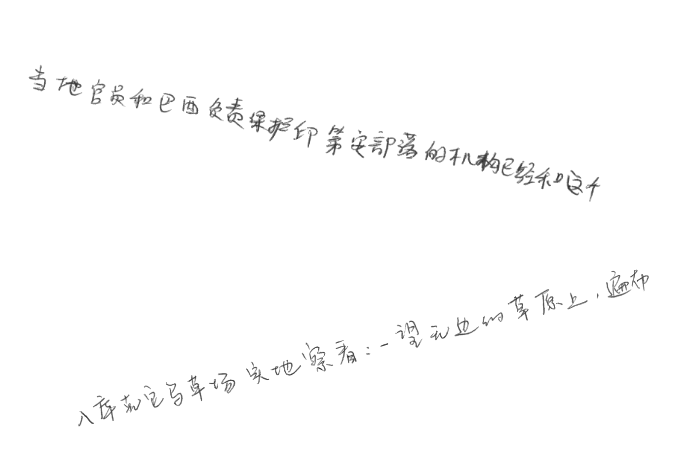 当地官员和巴西负责保护印第安部落的机构已经和这个
入库尔宝马草场实地察看:一望无边的草原上,遍布